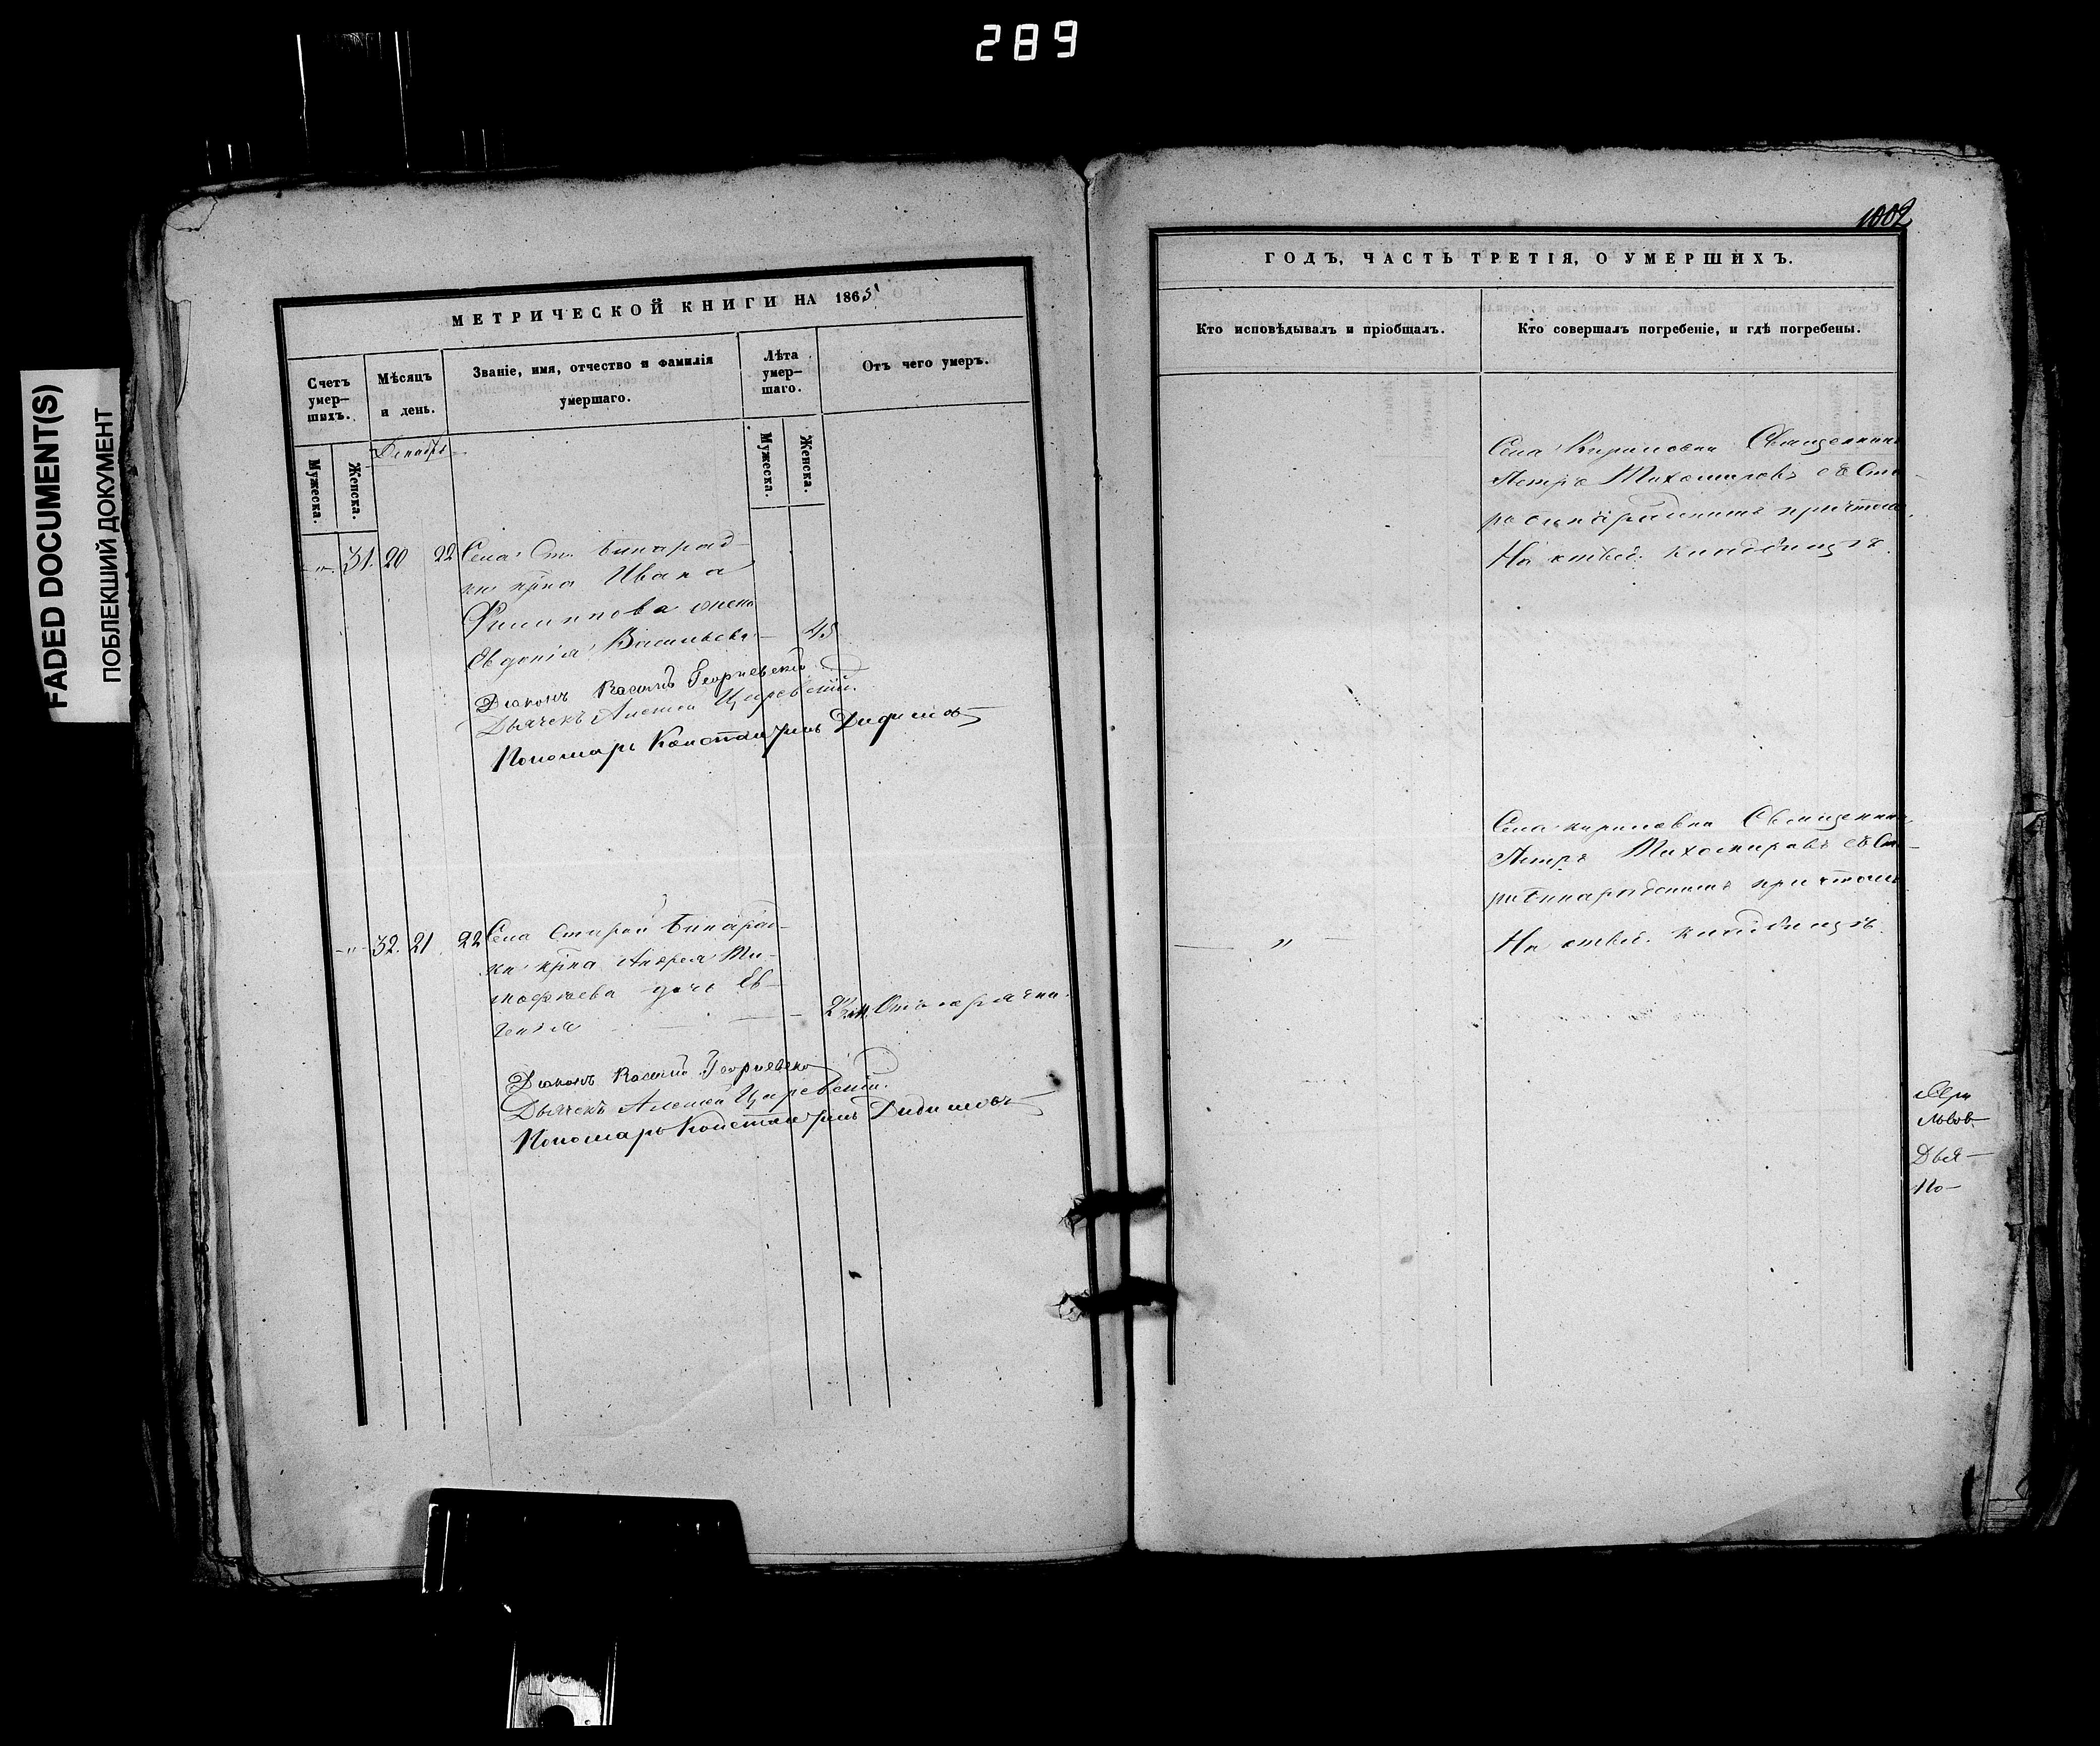 289
FADED DOCUMENT(S)
ПОБЛЕКШИЙ ДОКУМЕНТ
МЕТРИЧЕСКОЙ КНИГИ НА 1865
Счетъ умер-шихъ.
Мѣсяцъ и день.
Званіе, имя, отчество и фамилія умершаго.
Лѣта умер-шаго.
Отъ чего умеръ.
Мужеска.
Женска.
Декабрь
Мужеска.
Женска.
31. 20 22 Села Ст. Бинарад-
ки кр͠на Ивана
Филиппова жена
Евдокія Васильева — 45
Діаконъ Василій Георгіевскій
Дьячекъ Алексей Царевскій
Пономарь Константинъ Дидимовъ
-"- 32. 21. 22 Села Старой Бинарад-
ки кр͠на Андрея Ти-
мофѣева дочь Ев-
генія
Діаконъ Василій Георгіевскій
Дьячекъ Алексей Царевскій.
Пономарь Константинъ Дидимовъ
1002
ГОДЪ, ЧАСТЬ ТРЕТІЯ, О УМЕРШИХЪ.
Кто исповѣдывалъ и пріобщалъ.
Кто совершалъ погребеніе, и гдѣ погребены.
Села Кириловки Священникъ
Петръ Тихомировъ съ Ста-
ро бинарадскимъ причтомъ.
На отвед. кладбищѣ.
Села Кириловки Священникъ
Петръ Тихомировъ съ Ста-
ро бинарадскимъ причтомъ
— " — На отвед. кладбищѣ.
Дья-
По-